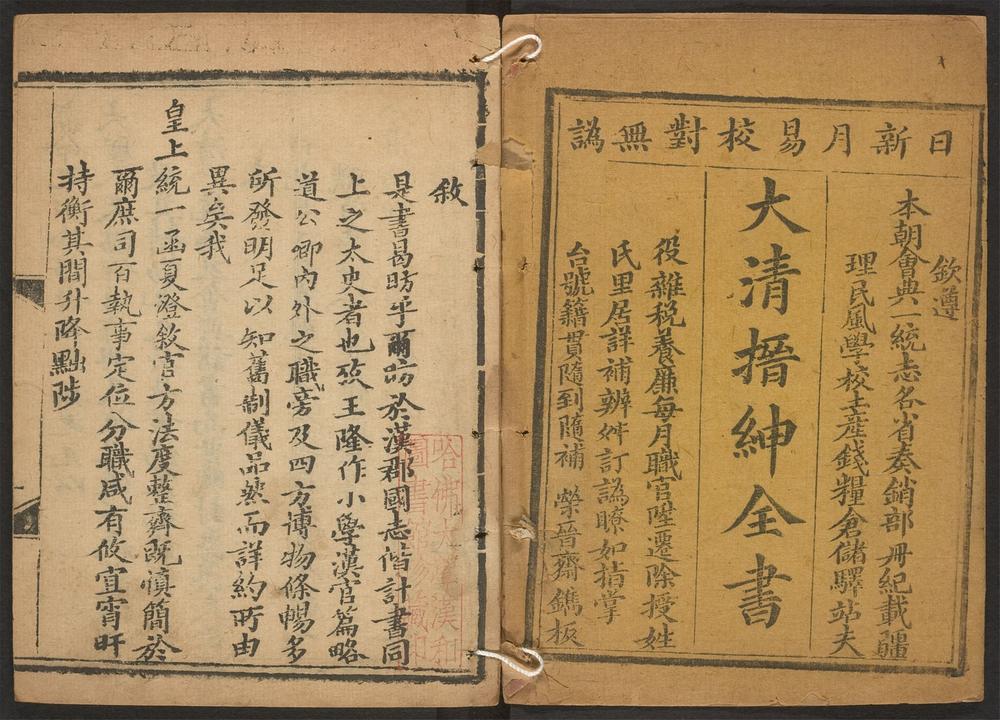 日新月易校對無譌
欽遵
本朝會典一統志各省奏銷部冊紀載疆
理民風學校土産錢糧倉儲驛站夫
大清搢紳全書
役雜稅養廉每月職官陞遷除授姓
氏里居詳補辨舛訂譌瞭如指掌
台號籍貫隨到隨補 榮晉齋鐫板
敘
是書曷昉乎爾昉於漢郡國志偕計書同
上之太史者也迨王隆作小學漢官篇略
道公卿內外之職旁及四方博物條暢多
所發明足以知舊制儀品葢而詳約所由
異矣我
皇上統一函夏澄敘官方法度整齊既慎簡於
爾庶司百執事定位分職咸有攸宜宵旰
持衡其間升降黜陟
哈佛大漢和
圖書館藏印